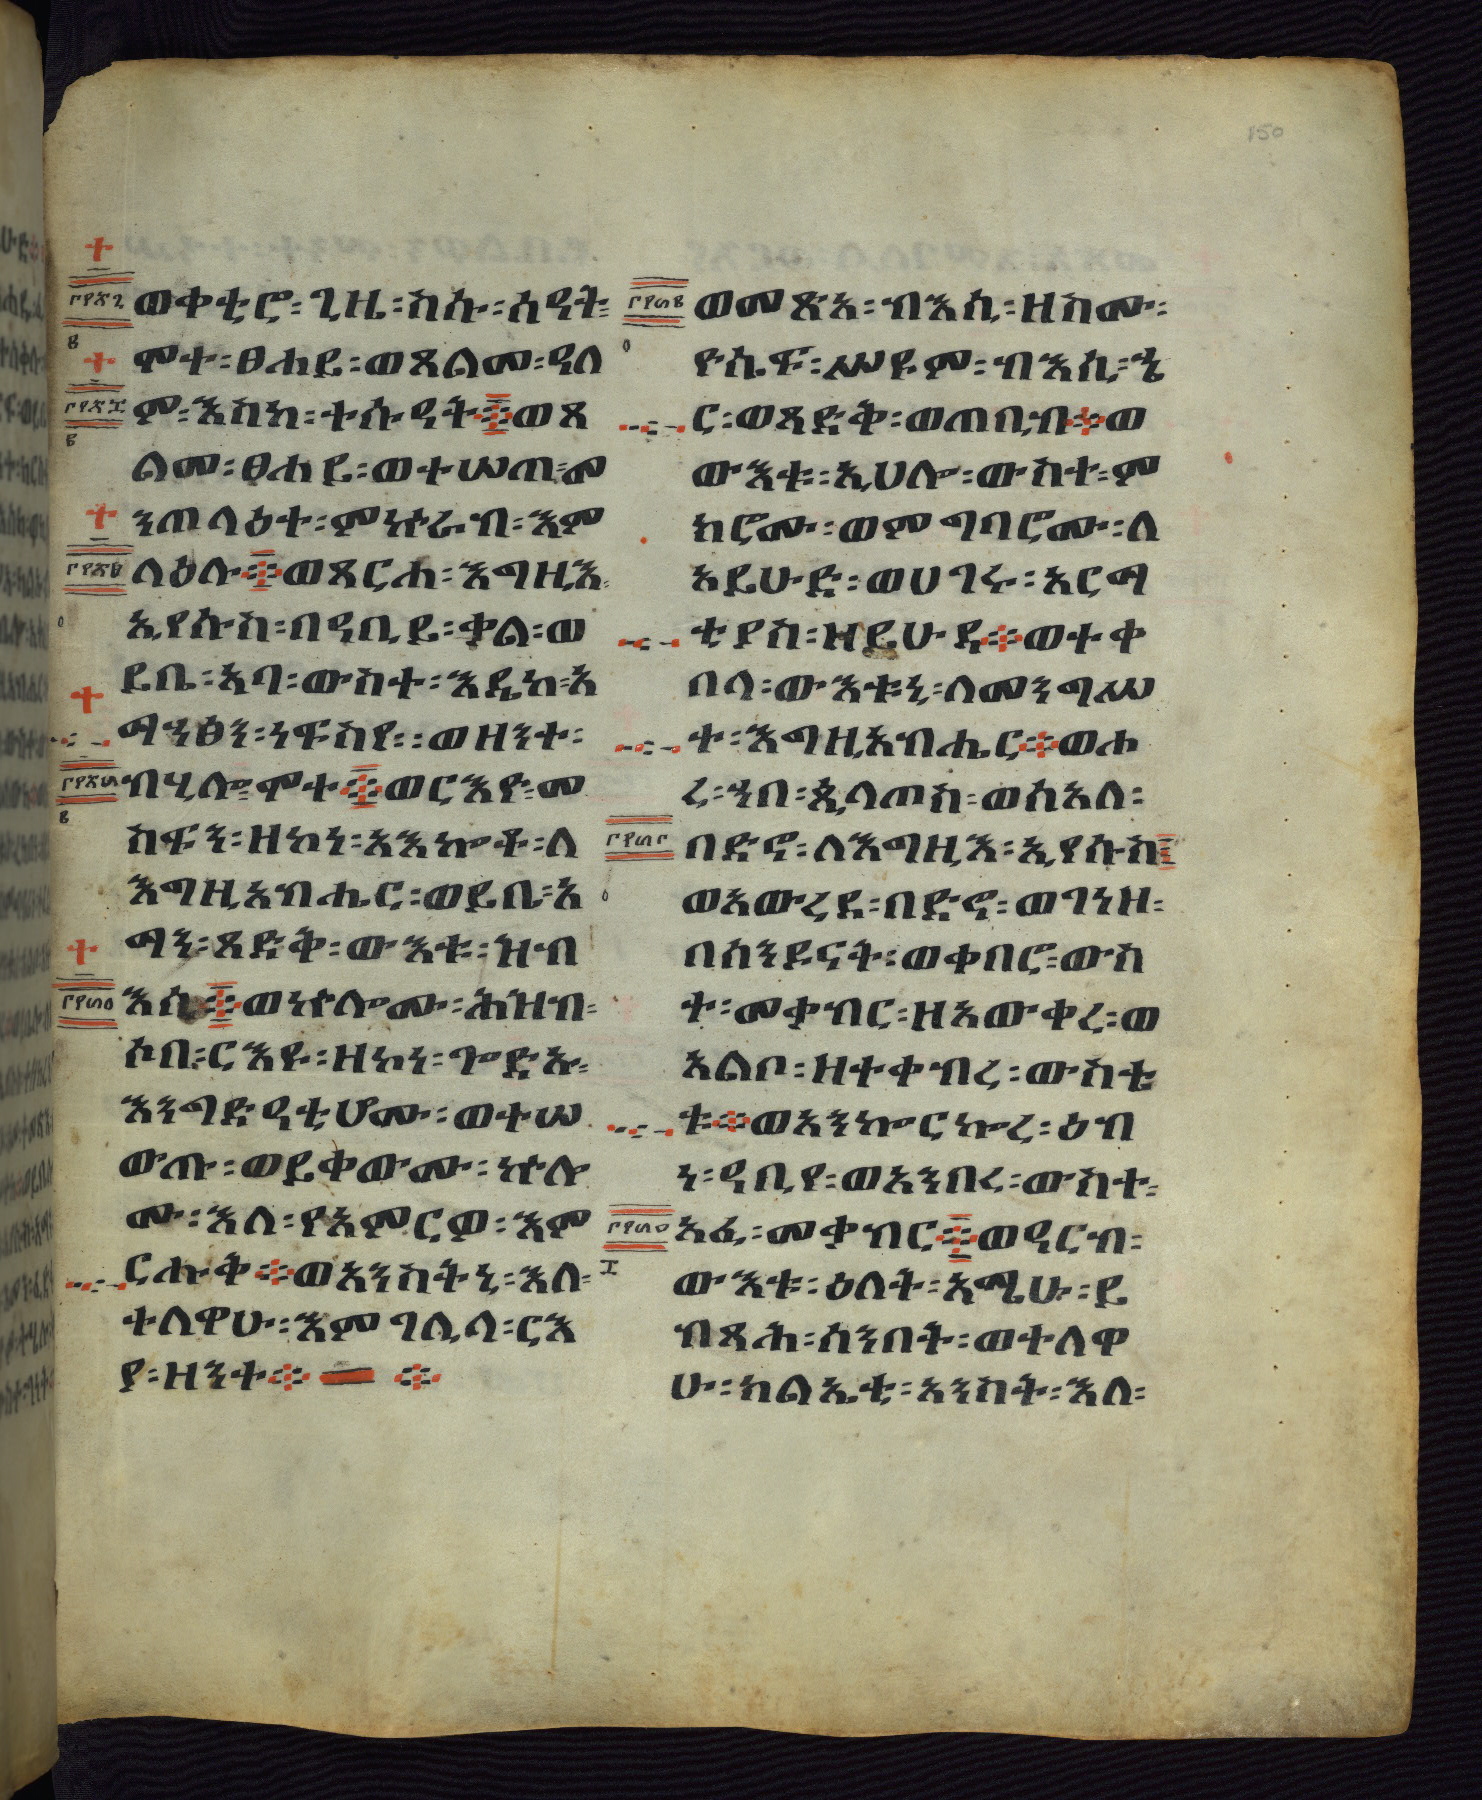 150
ወቀቲሮ፡ጊዜ፡ስሱ፡ሰዓት፡
ሞተ፡ፀሐይ፡ወጸልመ፡ዓለ
ም፡እስከ፡ተሱዓት፨ወጸ
ልመ፡ፀሐይ፡ወተሠጠ፡መ
ንጠላዕተ፡ምኵራብ፡እም
ላዕሉ፨ወጸርሐ፡እግዚእ፡
ኢየሱስ፡በዓቢይ፡ቃል፡ወ
ይቤ፡አባ፡ውስተ፡እዴከ፡አ
ማኀፅን፡ነፍስየ፡፡ወዘንተ፡
ብሂሎ፡ሞተ፨ወርእዮ፡መ
ስፍን፡ዘኮነ፡አእኰቶ፡ለ
እግዚአብሔር፡ወይቤ፡አ
ማን፡ጻድቅ፡ውእቱ፡ዝብ
እሲ፨ወኵሎሙ፡ሕዝብ፡
ሶበ፡ርእዩ፡ዘኮነ፡ጐድኡ፡
እንግድዓቲሆሙ፡ወተሠ
ውጡ፡ወይቀውሙ፡ኵሎ
ሙ፡እለ፡የአምርዎ፡እም
ርሑቅ፨ወአንስትኒ፡እለ፡
ተለዋሁ፡እምገሊላ፡ርእ
ያ፡ዘንተ፨ ፨
ወመጽአ፡ብእሲ፡ዘስሙ፡
ዮሴፍ፡ሡዩም፡ብእሲ፡ኄ
ር፡ወጻድቅ፡ወጠቢብ፨ወ
ውእቱ፡ኢሀሎ፡ውስተ፡ም
ክሮሙ፡ወምግባሮሙ፡ለ
አይሁድ፡ወሀገሩ፡አርማ
ቲያስ፡ዘይሁዳ፨ወተቀ
በላ፡ውእቱኒ፡ለመንግሥ
ተ፡እግዚአብሔር፨ወሐ
ረ፡ኀበ፡ጲላጦስ፡ወሰአለ፡
በድኖ፡ለእግዚእ፡ኢየሱስ፨
ወአውረደ፡በድኖ፡ወገነዘ፡
በሰንዱናት፡ወቀበሮ፡ውስ
ተ፡መቃብር፡ዘአውቀረ፡ወ
አልቦ፡ዘተቀብረ፡ውስቴ
ቱ፨ወአንኰርኰረ፡ዕብ
ነ፡ዓቢየ፡ወአንበረ፡ውስተ፡
አፈ፡መቃብር፨ወዓርብ፡
ውእቱ፡ዕለት፡አሜሁ፡ይ
ብጻሕ፡ሰንበት፡ወተለዋ
ሁ፡ክልኤቲ፡አንስት፡እለ፡